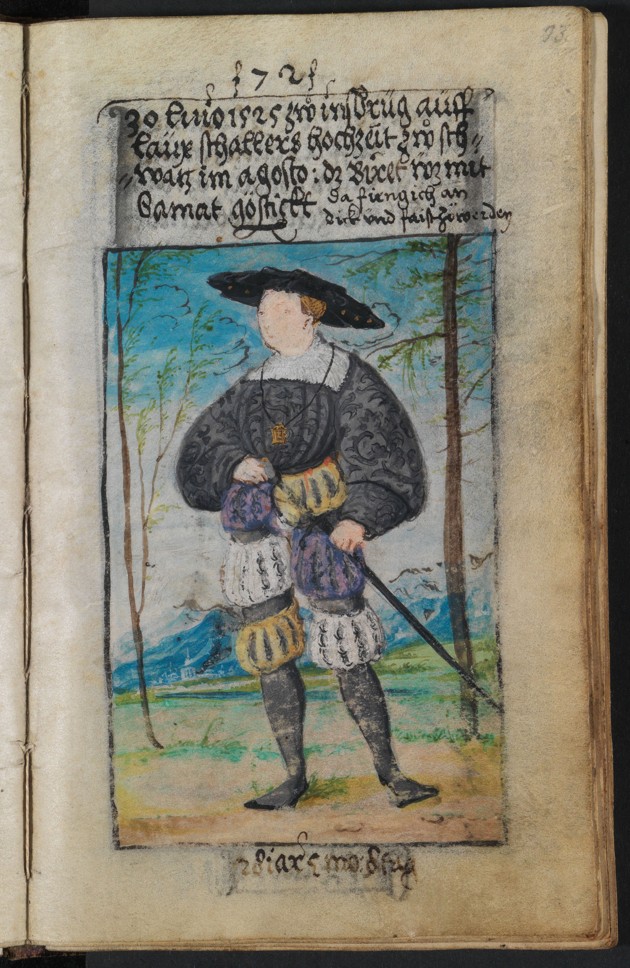 93.
1721
30 Luio 1525 zwͦ insbrug auff
laux schallers hochzeit zwͦ sch=
=watz im agosto: dz biret wz mit
Samat gostickt da fieng ich an
dick vnd faist zwͦ werden
28 iar 5